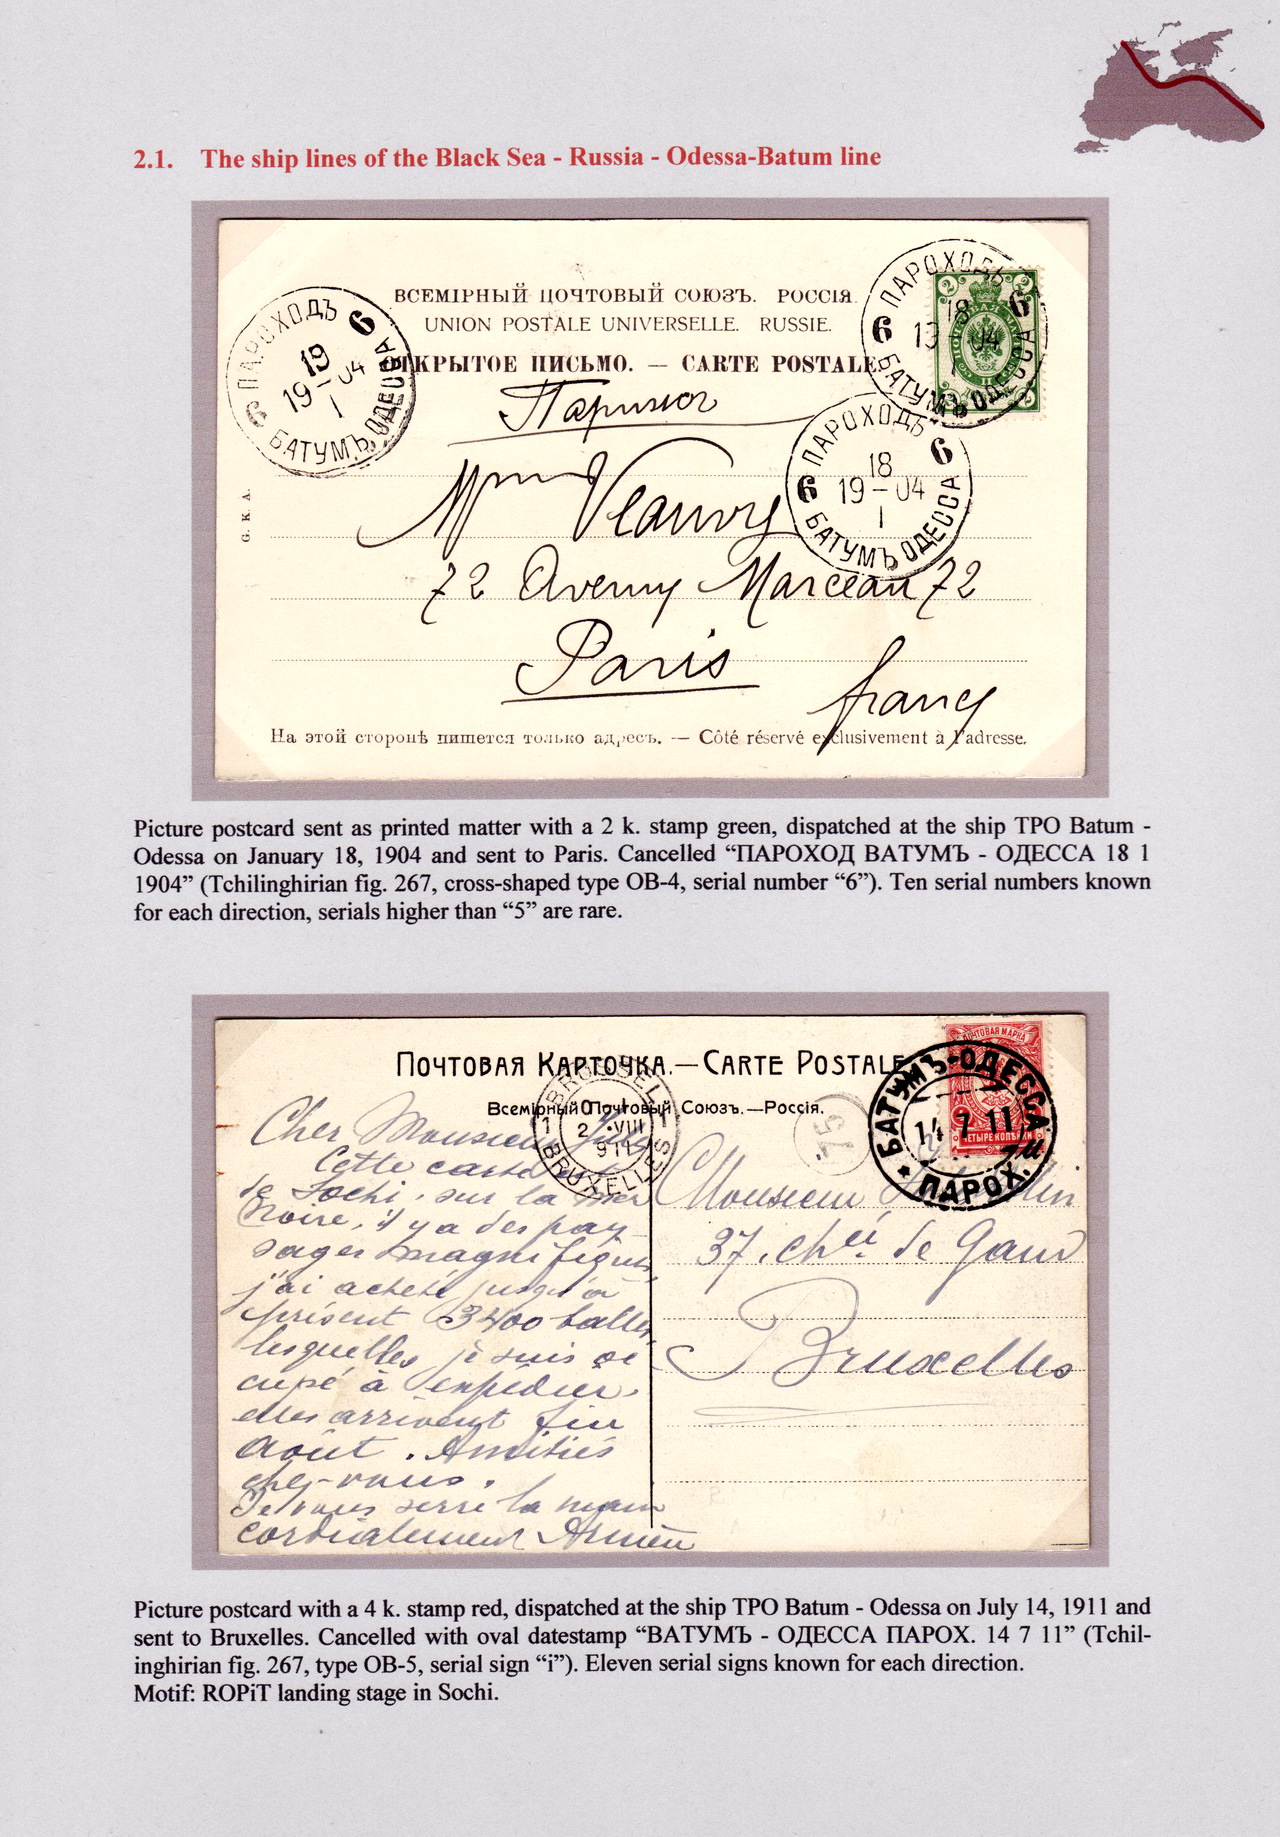 2.1. The ship lines of the Black Sea - Russia - Odessa-Batum line
ВСЕМІРНЫЙ ПОЧТОВЫЙ СОЮЗЪ. РОССІЯ.
UNION POSTALE UNIVERSELLE. RUSSIE.
ОТКРЫТОЕ ПИСЬМО. — CARTE POSTALE
ПАРОХОДЪ 6
19
19-04
I
6 БАТУМЪ ОДЕССА
ПАРОХОДЪ 6
18
19-04
I
6 БАТУМЪ ОДЕССА
ПАРОХОДЪ 6
18
19-04
I
6 БАТУМЪ ОДЕССА
2 2
Парижъ
G. K. A.
Mme
72 Avenue Marceau 72
Paris
france
На этой сторонѣ пишется только адресъ. — Côté réservé exclusivement à l'adresse.
Picture postcard sent as printed matter with a 2 k. stamp green, dispatched at the ship TPO Batum -
Odessa on January 18, 1904 and sent to Paris. Cancelled “ПАРОХОД BATУMЪ - ОДЕССА 18 1
1904” (Tchilinghirian fig. 267, cross-shaped type OB-4, serial number “6”). Ten serial numbers known
for each direction, serials higher than “5” are rare.
ПОЧТОВАЯ КАРТОЧКА.—CARTE POSTALE
Всемірный Почтовый Союзъ.—Россія.
ПОЧТОВАЯ МАРКА
ЧЕТЫРЕ КОПѢЙКИ
БАТУМЪ-ОДЕССА
14 7 11
ПАРОХ.
BRUXELLES
VIII
BRUXELLES
75
Cher Monsieur
Cette carte est
de Sochi, sur la mer
Noire, il y a des pay-
sages magnifiques,
j'ai acheté jusqu'à
présent 3400 balles
lesquelles je suis oc
cupé à expédier,
elles arrivent fin
Août. Amitiés
chez-vous.
Je vous serre la main
cordialement
Monsieur
37, chée de Gand
Bruxelles
Picture postcard with a 4 k. stamp red, dispatched at the ship TPO Batum - Odessa on July 14, 1911 and
sent to Bruxelles. Cancelled with oval datestamp “BATУMЪ - ОДЕССА ПАРОХ. 14 7 11” (Tchil-
inghirian fig. 267, type OB-5, serial sign “i”). Eleven serial signs known for each direction.
Motif: ROPiT landing stage in Sochi.